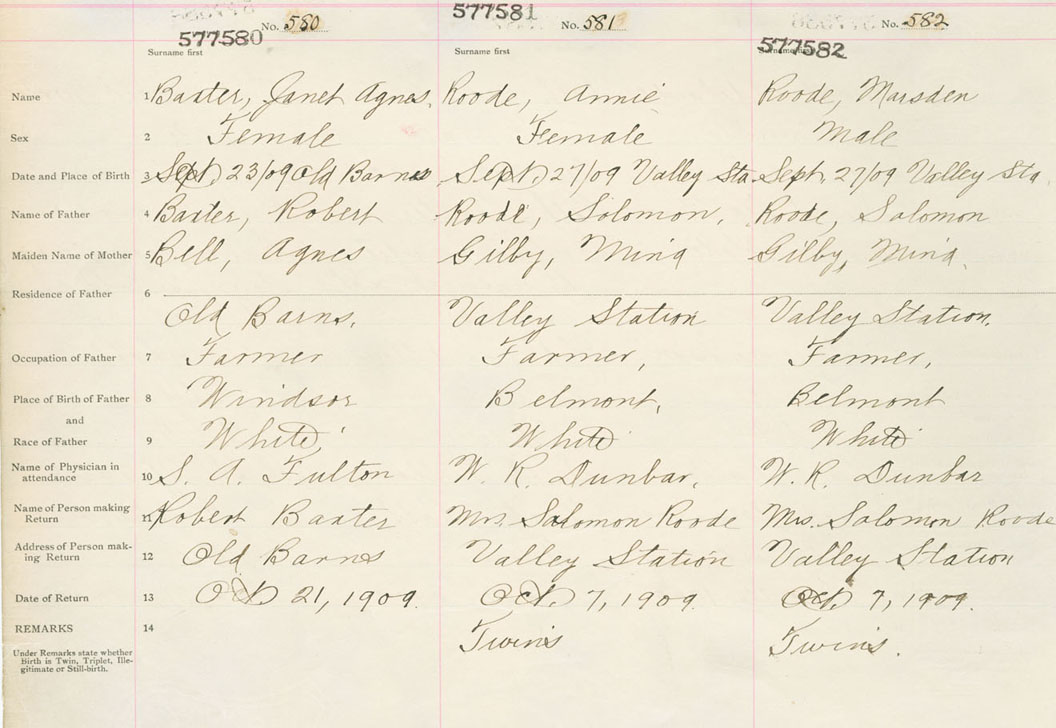 No. 580
577580
577581
No. 581
No. 582
577582
Surname first
Surname first
Name 1 Baxter, Janet Agnes. Roode, Annie Roode, Marsden
Sex 2 Female Female Male
Date and Place of Birth 3 Sept. 23/09 Old Barnes Sept. 27/09 Valley Sta Sept. 27/09 Valley Sta.
Name of Father 4 Baxter, Robert Roode, Solomon, Roode, Salomon
Maiden Name of Mother 5 Bell, Agnes Gilby, Mina Gilby, Mina.
Residence of Father 6
Old Barns. Valley Station Valley Station.
Occupation of Father 7 Farmer Farmer, Farmer,
Place of Birth of Father 8 Windsor Belmont, Belmont
and
Race of Father 9 White White White
Name of Physician in
attendance 10 S. A. Fulton W. R. Dunbar, W. R. Dunbar
Name of Person making
Return 11 Robert Baxter Mrs. Salomon Roode Mrs. Salomon Roode
Address of Person mak-
ing Return 12 Old Barns Valley Station Valley Station
Date of Return 13 Oct. 21, 1909. Oct. 7, 1909. Oct. 7, 1909.
REMARKS 14 Twins Twins.
Under Remarks state whether
Birth is Twin, Triplet, Ille-
gitimate or Still-birth.